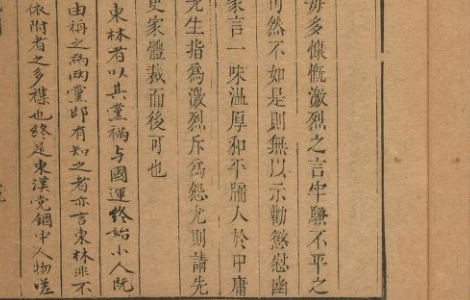 每多慷慨激烈之言牢騷不平之
可然不如是則無以示勸懲慰幽
家言一味溫厚和平牖人於中庸
先生指爲激烈斥爲怨尤則請先
史家體裁而後可也
東林者以其黨禍与國運終始小人旣
由稱之爲兩黨即有知之者亦言東林非不
依附者之多襍也終是東漢党錮中人物嗟